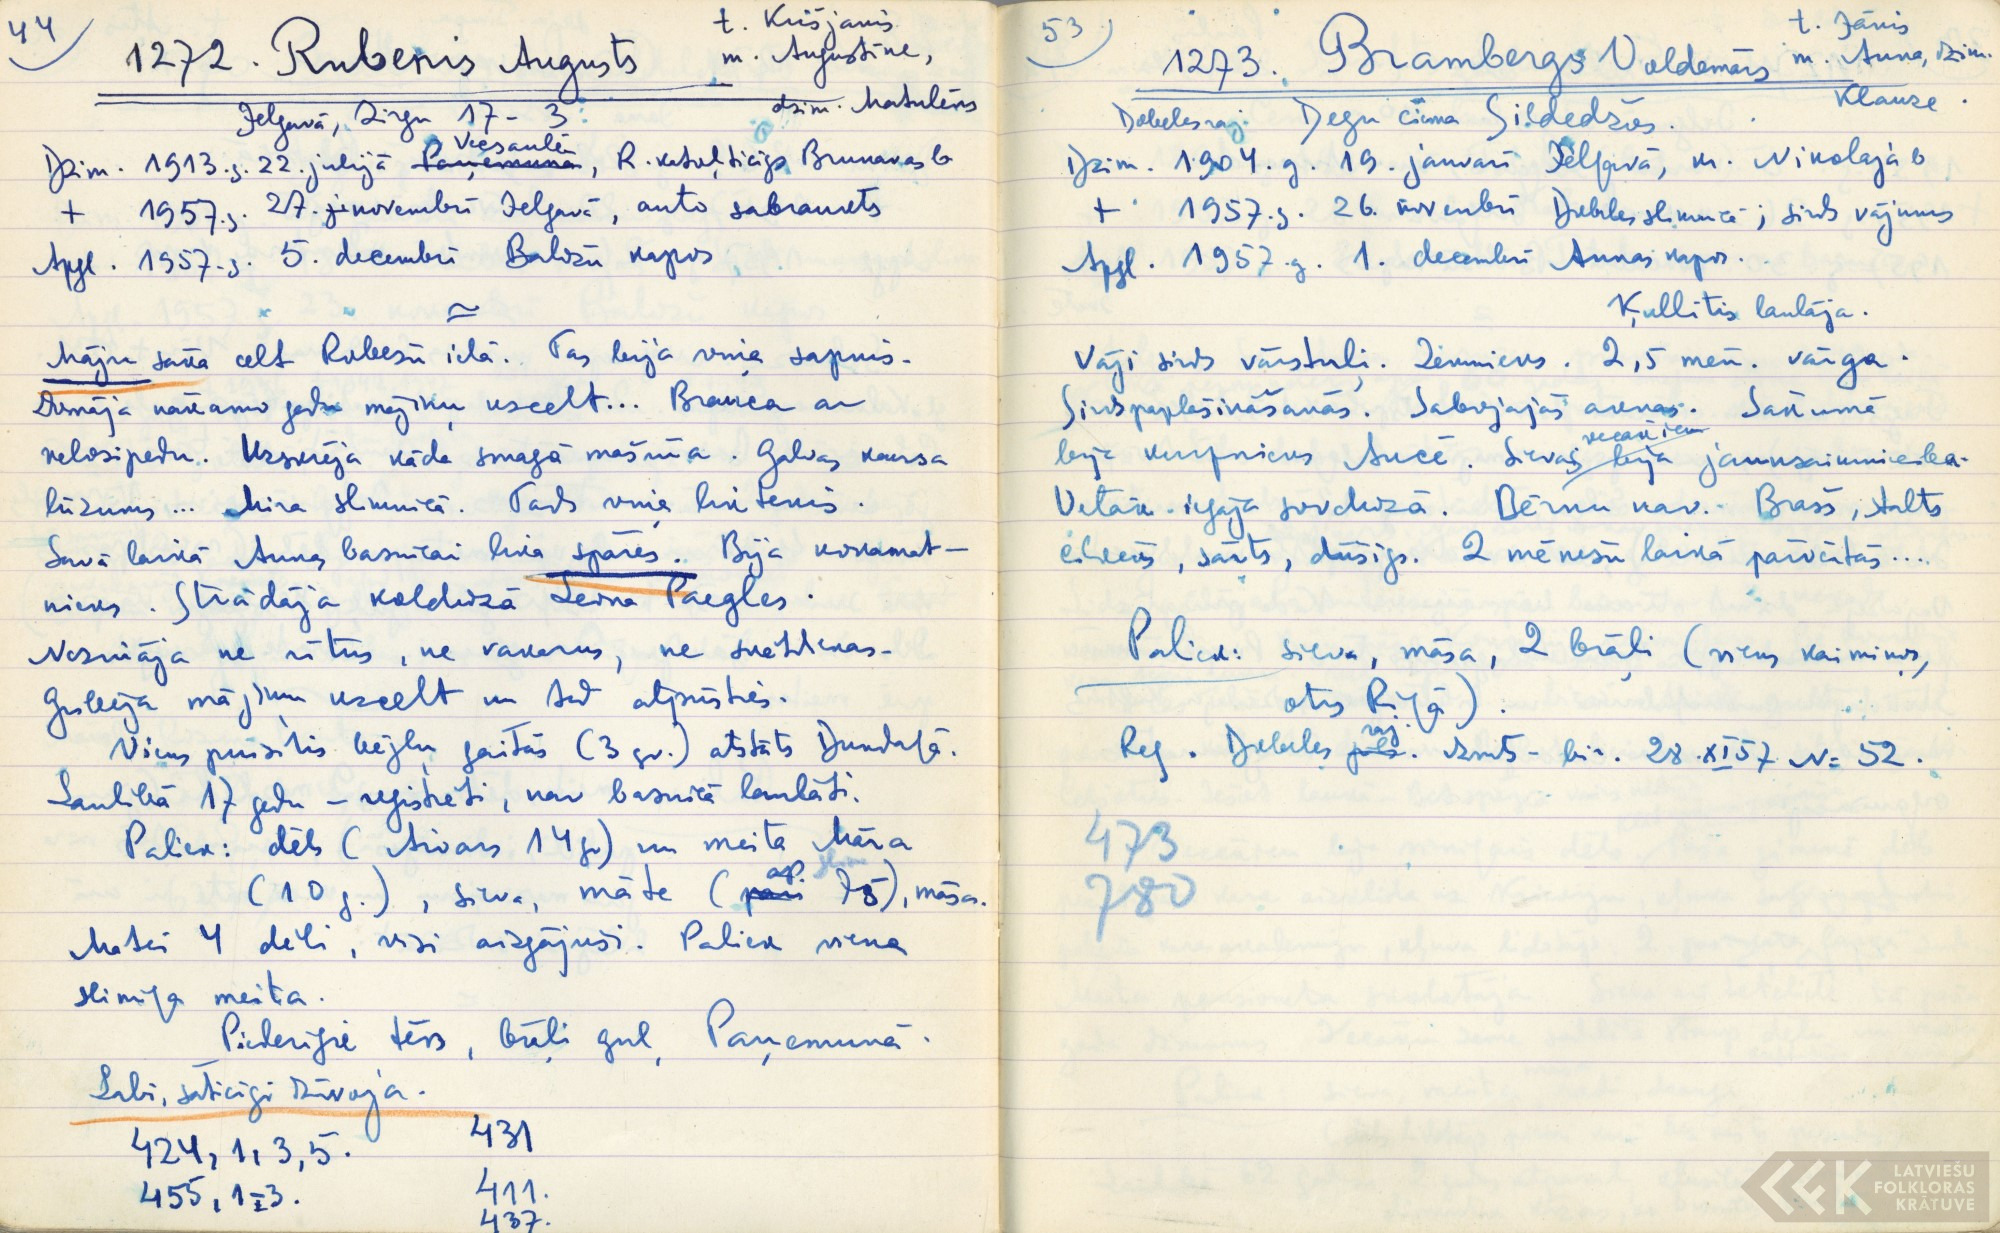 44
1272. Rubenis Augusts
t. Krišjanis
m. Augustīne,
dzim. Matulēns
Jelgavā, Zirgu 17-3
Viesautū
Dzim. 1913.g. 22. julijā Paņemunā, R. katoļticīgs Brunavas b
+ 1957.g. 27. novembrī Jelgavā, auto sabraukts
Apgl. 1957.g. 5. decembrī Baložu kapos
≈
Māju sāka celt Rubeņu ielā. Tas bija viņa sapnis.
Domāja nākamo gadu mājiņu uzcelt... Brauca ar
velosipedu. Uzskrēja kāda smagā mašīna. Galvas kausa
lūzums... Mira slimnīcā. Tāds viņa liktenis.
Savā laikā Annas baznīcai lika spāres. Bija kokamat-
nieks. Strādāja kolchozā Leona Paegles.
Nezināja ne rītus, ne vakarus, ne svētdienas.
Gribēja mājiņu uzcelt un tad atpūsties.
Viens puisītis bēgļu gaitās (3 g.) atstāts Dundagā.
Laulībā 17 gadu - reģistrēti, nav baznīcā laulāti.
Paliek: dēls (Aivars 14 g) un meita Māra
ap. slima
(10 g.), sieva, māte (pāri 75), māsa.
Mātei 4 dēli, visi aizgājuši. Paliek viena
slimīga meita.
Piederīgie tēvs, brāļi guļ Paņemunā.
Labi, saticīgi dzīvoja.
424, 1, 3, 5. 431
455, 1-3. 411.
437.
53
1273. Brambergs Voldemārs
t. Jānis
m. Anna, dzim.
Klauze.
Dobeles raj. Degu ciema Sildedžos.
Dzim. 1904. g. 19. janvarī Jelgavā, kr. Nikolaja b
+ 1957.g. 26. novembrī Dobeles slimnīcā; sirds vājums
Apgl. 1957.g. 1. decembrī Annas kapos.
Ķullītis laulāja.
Vāji sirds vārstuļi. Zēmnieks. 2,5 mēn. vārga.
Sirdspaplašināšanās. Sabojājās aknas. Sākumā
vecākiem
bija kurpnieks Aucē. Sievas bija jaunsaimniecība.
Vēlāk iegāja sovchozā. Bērnu nav. Brašs, stalts
cilvēks, sārts, dūšīgs. 2 mēnešu laikā pārvērtās...
Paliek: sieva, māsa, 2 brāļi (viens kaimiņos,
otrs Rīgā).
raj.
Reģ. Dobeles pils. dzimts-bir. 28.XI57 N= 52.
473
780
LATVIEŠU
FOLKLORAS
KRĀTUVE